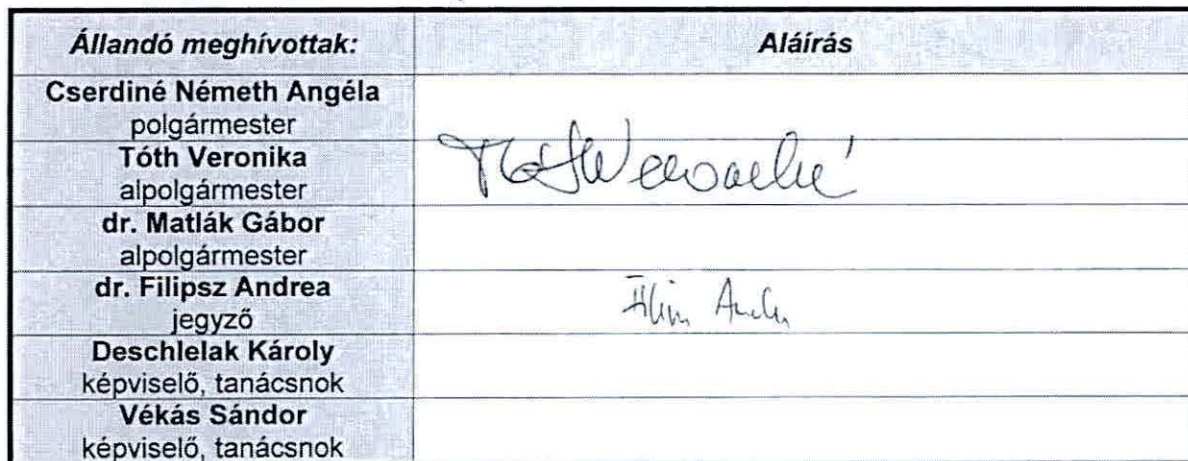 Állandó meghívottak: Aláírás
Cserdiné Németh Angéla
polgármester
Tóth Veronika
alpolgármester
dr. Matlák Gábor
alpolgármester
dr. Filipsz Andrea
jegyző
Deschlelak Károly
képviselő, tanácsnok
Vékás Sándor
képviselő, tanácsnok